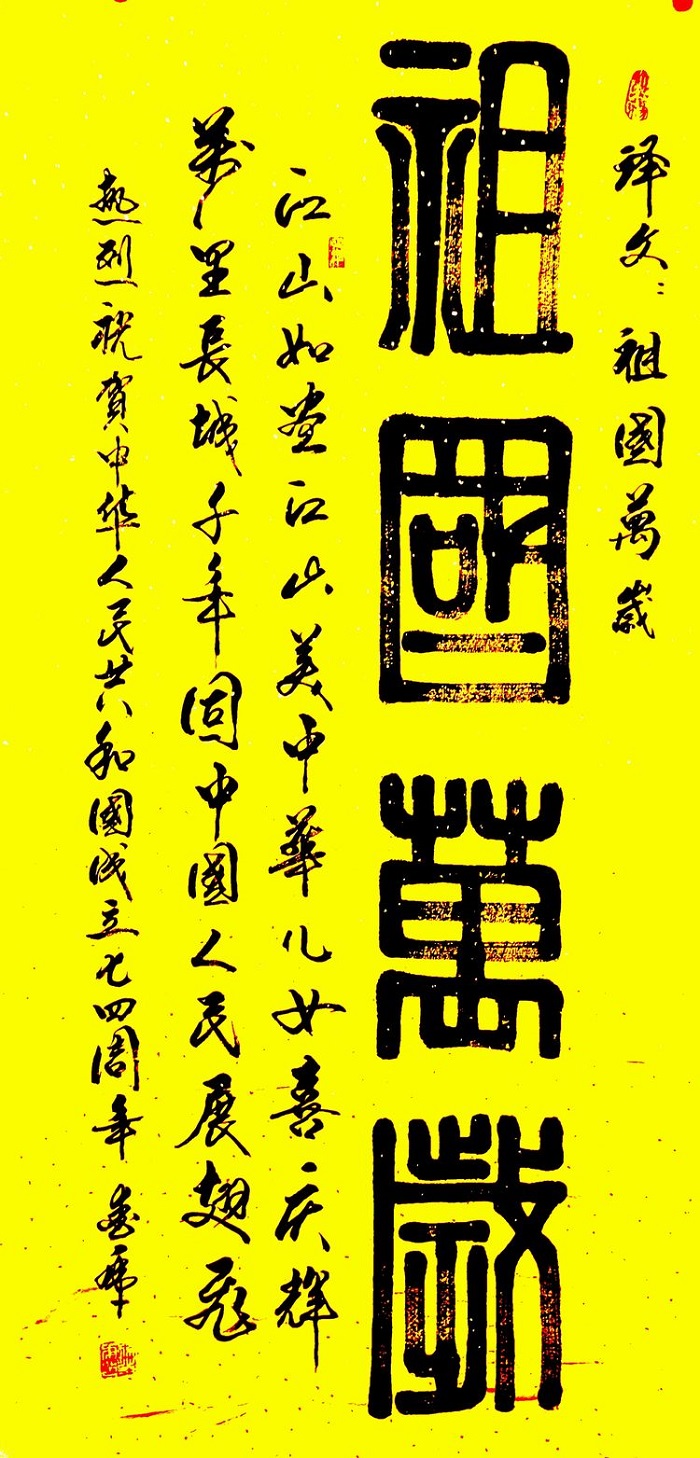 译文：祖國萬歲
祖國萬歲
江山如画江山美中華儿女喜庆辉
萬里長城千年固中國人民展翅飛
热烈祝贺中华人民共和國成立七四周年